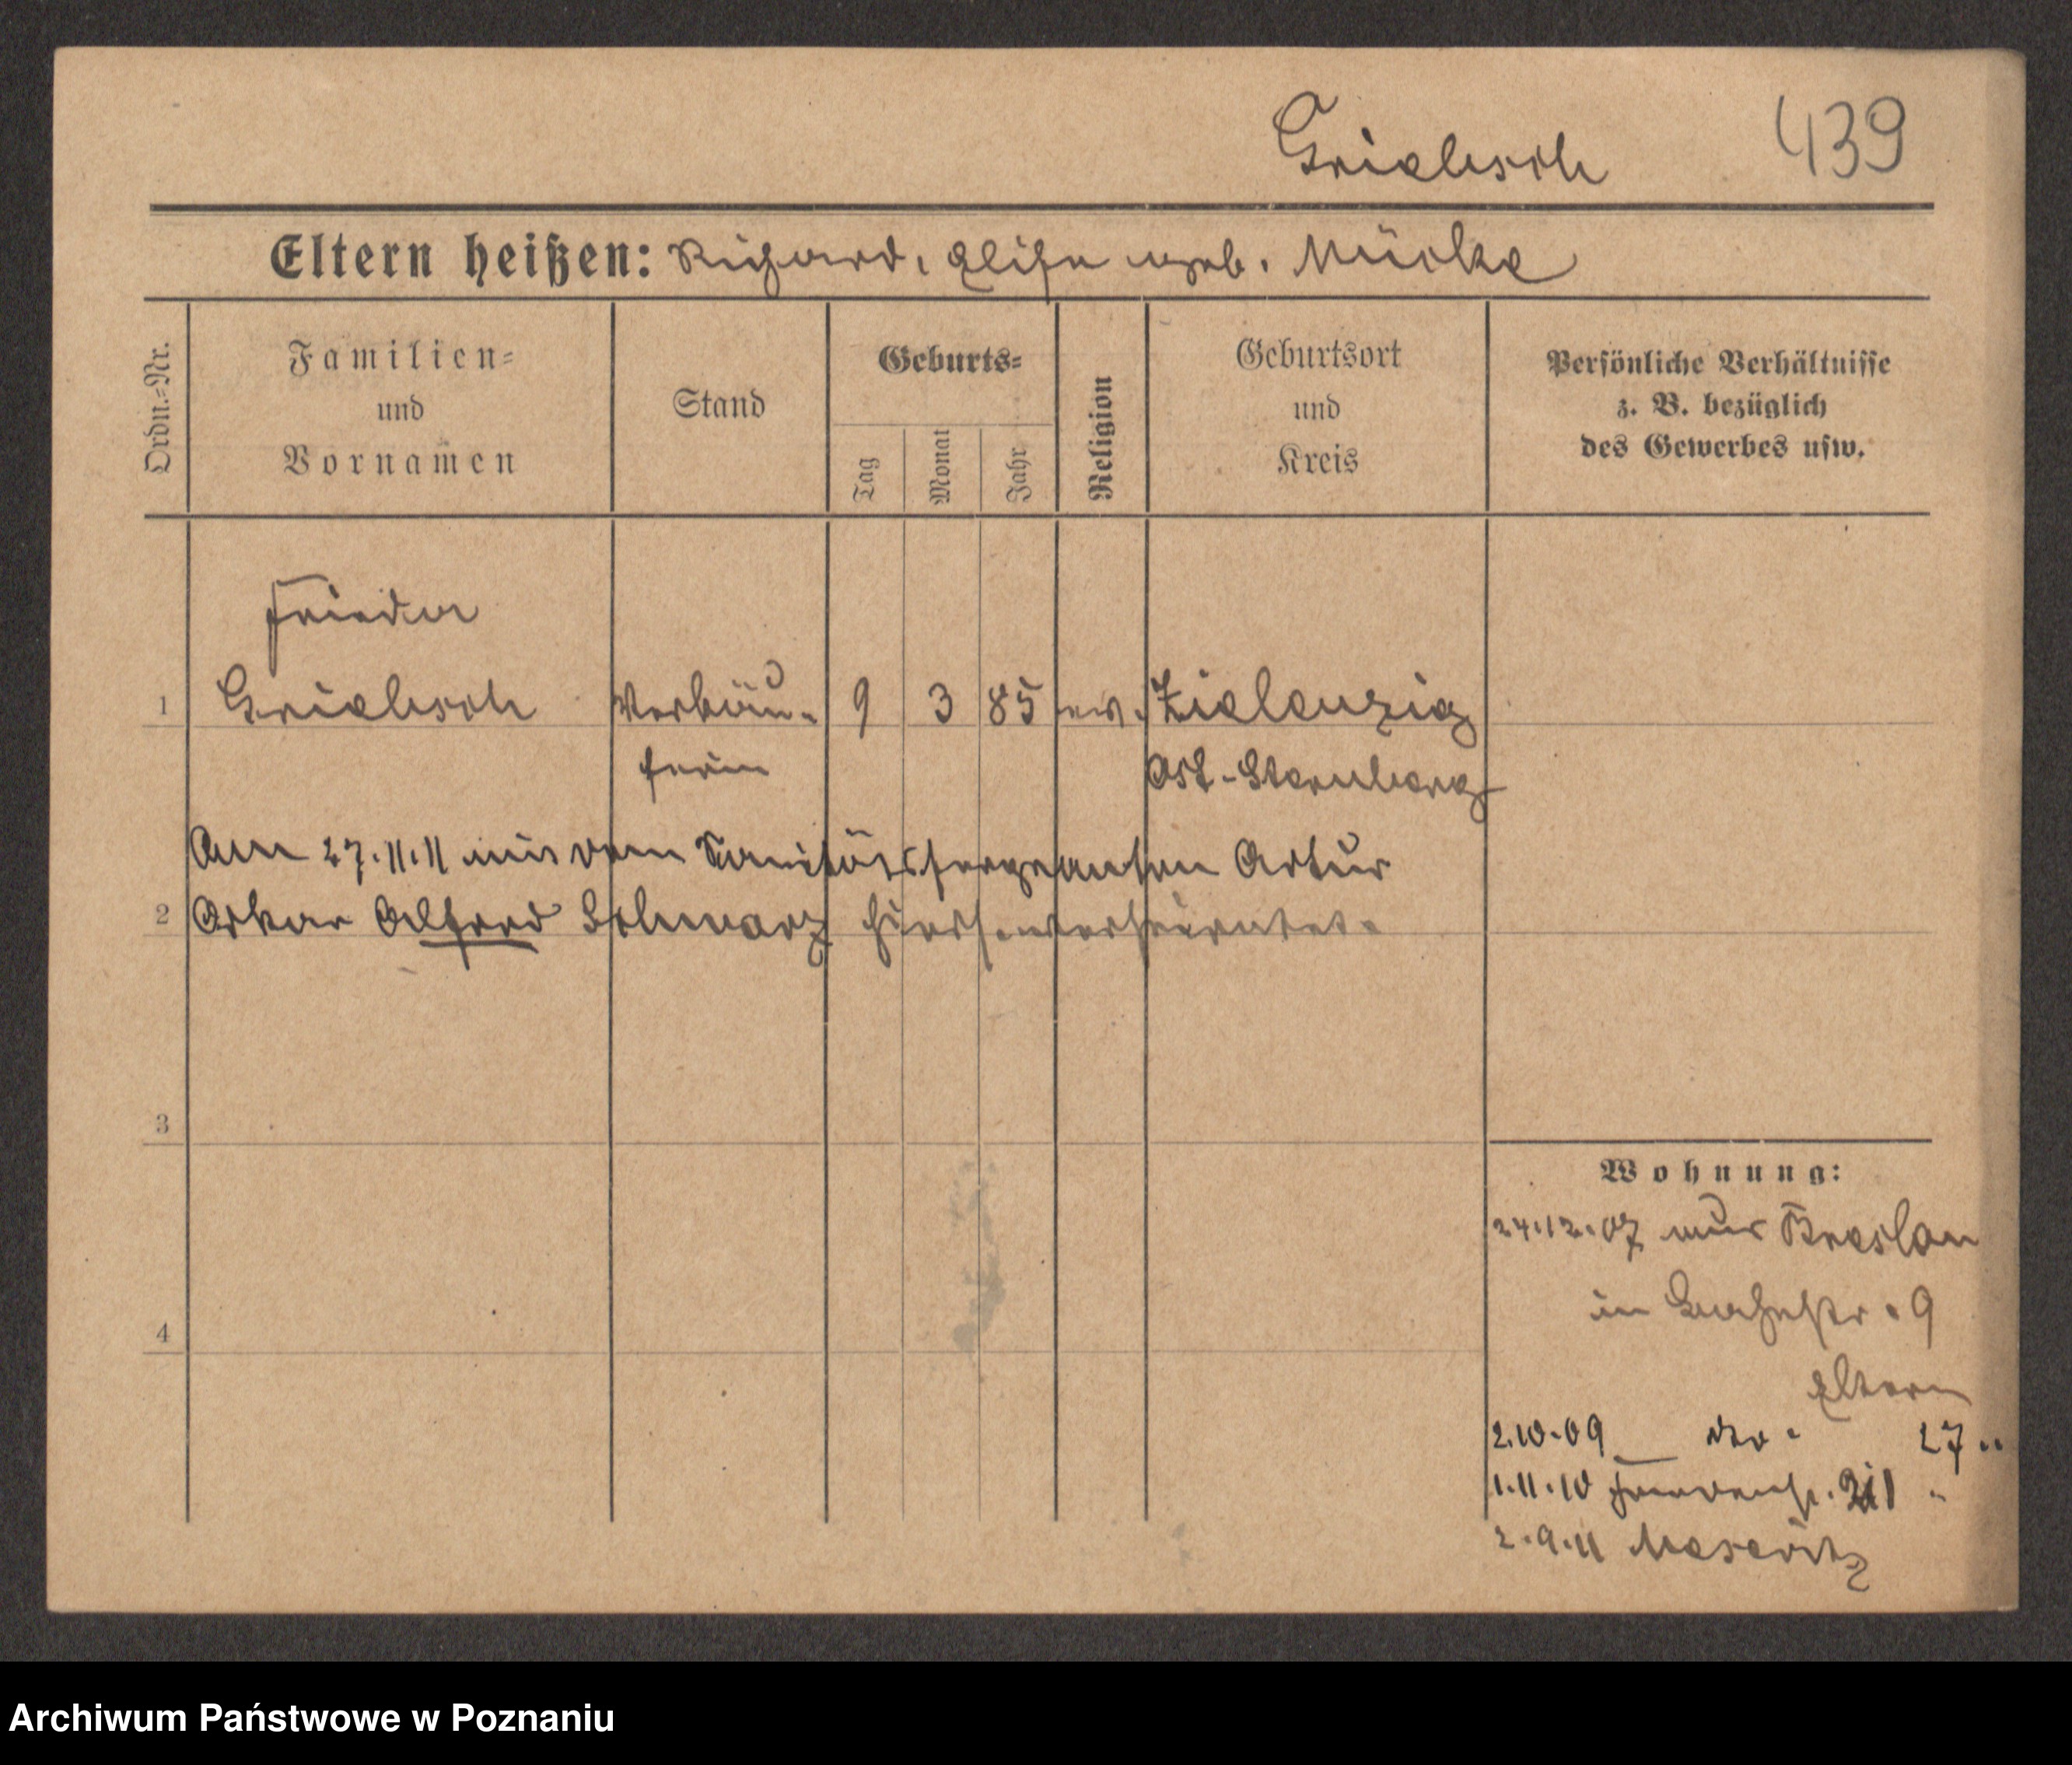 Grielsch 439
Eltern heißen: Richard, Elise geb. Mücke
Ordn.-Nr.
Familien-
und
Vornamen
Stand
Geburts-
Tag
Monat
Jahr
Religion
Geburtsort
und
Kreis
Persönliche Verhältnisse
z. B. bezüglich
des Gewerbes usw.
Frieda
1 Grielsch Verkäu- 9 3 85 ev. Zielenzig
ferin Ost-Sternberg
Am 27.11.11 mit dem Sanitätssergeanten Artur
2 Oskar Alfred Schwarz hier verheiratet.
3
4
Wohnung:
24.12.07 aus Breslau
in 9
Eltern
2.10.09 dto. 27 "
1.11.10 "
2.9.11 Meseritz
Archiwum Państwowe w Poznaniu